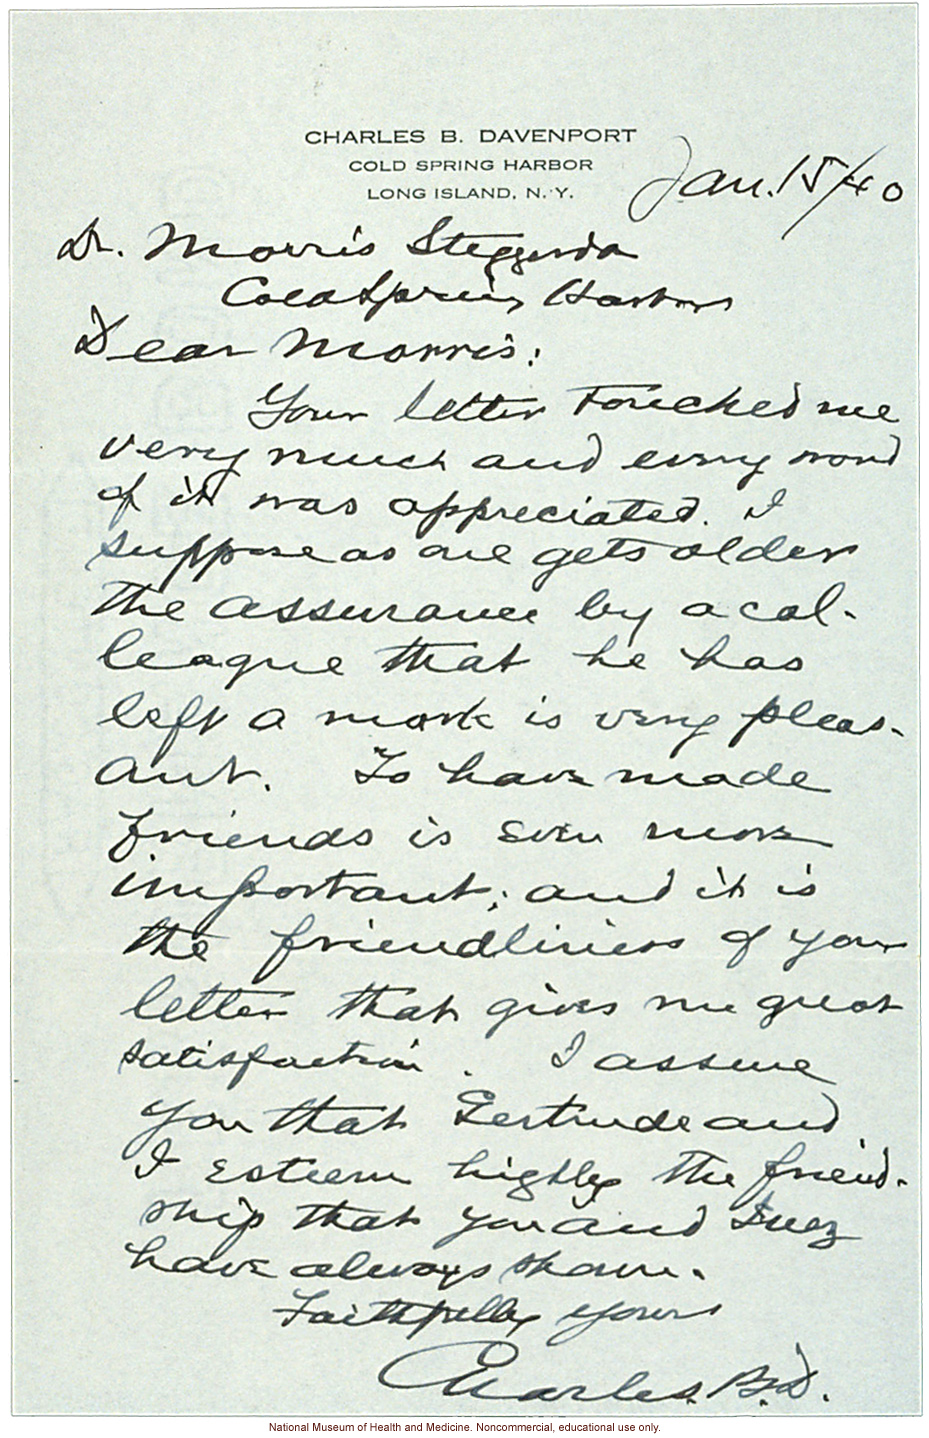 CHARLES B. DAVENPORT
COLD SPRING HARBOR
LONG ISLAND, N. Y.
Jan. 15/40
Dr. Morris Steggerda
Cold Spring Harbor
Dear Morris:
Your letter touched me
very much and every word
of it was appreciated. I
suppose as one gets older
the assurance by a col-
league that he has
left a mark is very pleas-
ant. To have made
friends is even more
important; and it is
the friendliness of your
letter that gives me great
satisfaction. I assure
you that Gertrude and
I esteem highly the friend-
ship that you and Inez
have always shown.
Faithfully yours
Charles. B. D.
National Museum of Health and Medicine. Noncommercial, educational use only.